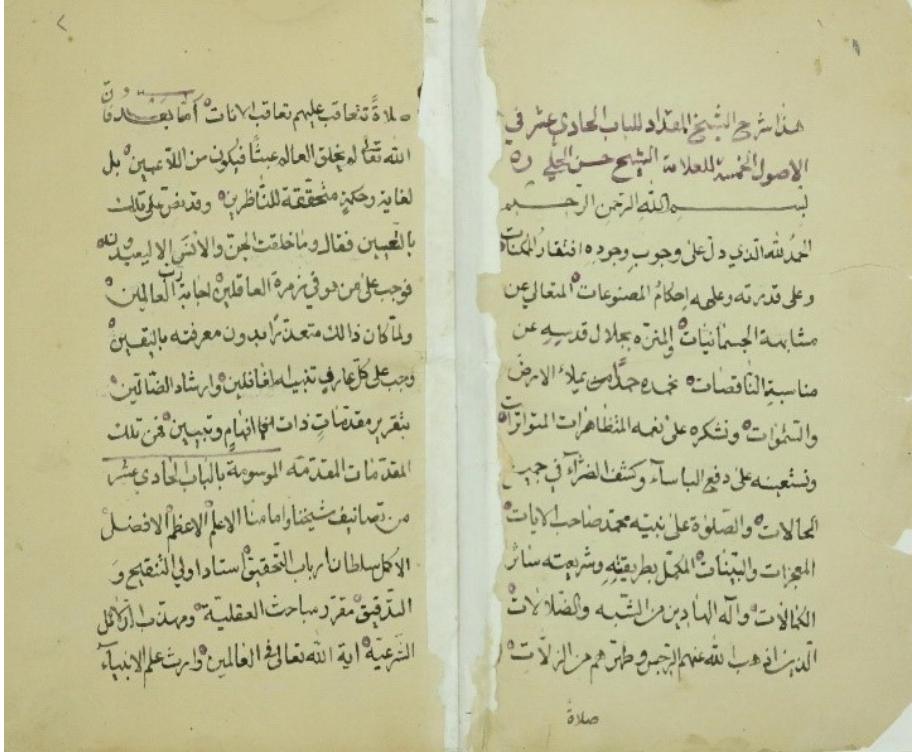 هذا شرح الشيخ المقداد للباب الحادي عشر في
الاصول الخمسة للعلامة الشيخ حسن الحلي ره
بسم الله الرحمن الرحيم
الحمد لله الذي دل على وجوب وجوده افتقار الممكنات
وعلى قدرته وعلمه احكام المصنوعات المتعالي عن
مشابهة الجسمانيات المنزه بجلال قدسه عن
مناسبة الناقصات نحمده حمدا يملاء الارض
والسموات ونشكره على نعمه المتظاهرات المتواترات
ونستعينه على دفع الباساء وكشف الضراء في جميع
الحالات والصلوة على نبيه محمد صاحب الايات
المعجزات والبينات المكمل بطريقته وشريعته سائر
الكمالات وآله الهادين من الشبه والضلالات
الذين اذهب الله عنهم الرجس وطهرهم من الزلات
صلاة
صلاة تتعاقب عليهم تعاقب الانات اما بعد فان
الله تعالى لم يخلق العالم عبثا فيكون من اللاعبين بل
لغاية وحكمة متحققة للناظرين وقد نص على تلك
بالتعيين فقال وما خلقت الجن والانس الا ليعبدون
فوجب على من هو في زمرة العاقلين اجابة رب العالمين
ولما كان ذالك متعذرا بدون معرفته باليقين
وجب على كل عارف تنبيه الغافلين وارشاد الضالين
بتقرير مقدمات ذات افهام وتبيين فمن تلك
المقدمات المقدمة الموسومة بالباب الحادي عشر
من تصانيف شيخنا وامامنا الاعلم الاعظم الافضل
الاكمل سلطان ارباب التحقيق استاد اولي التنقيح و
التدقيق مقرر مباحث العقلية ومهذب الدلائل
الشرعية اية الله تعالى في العالمين وارث علم الانبياء